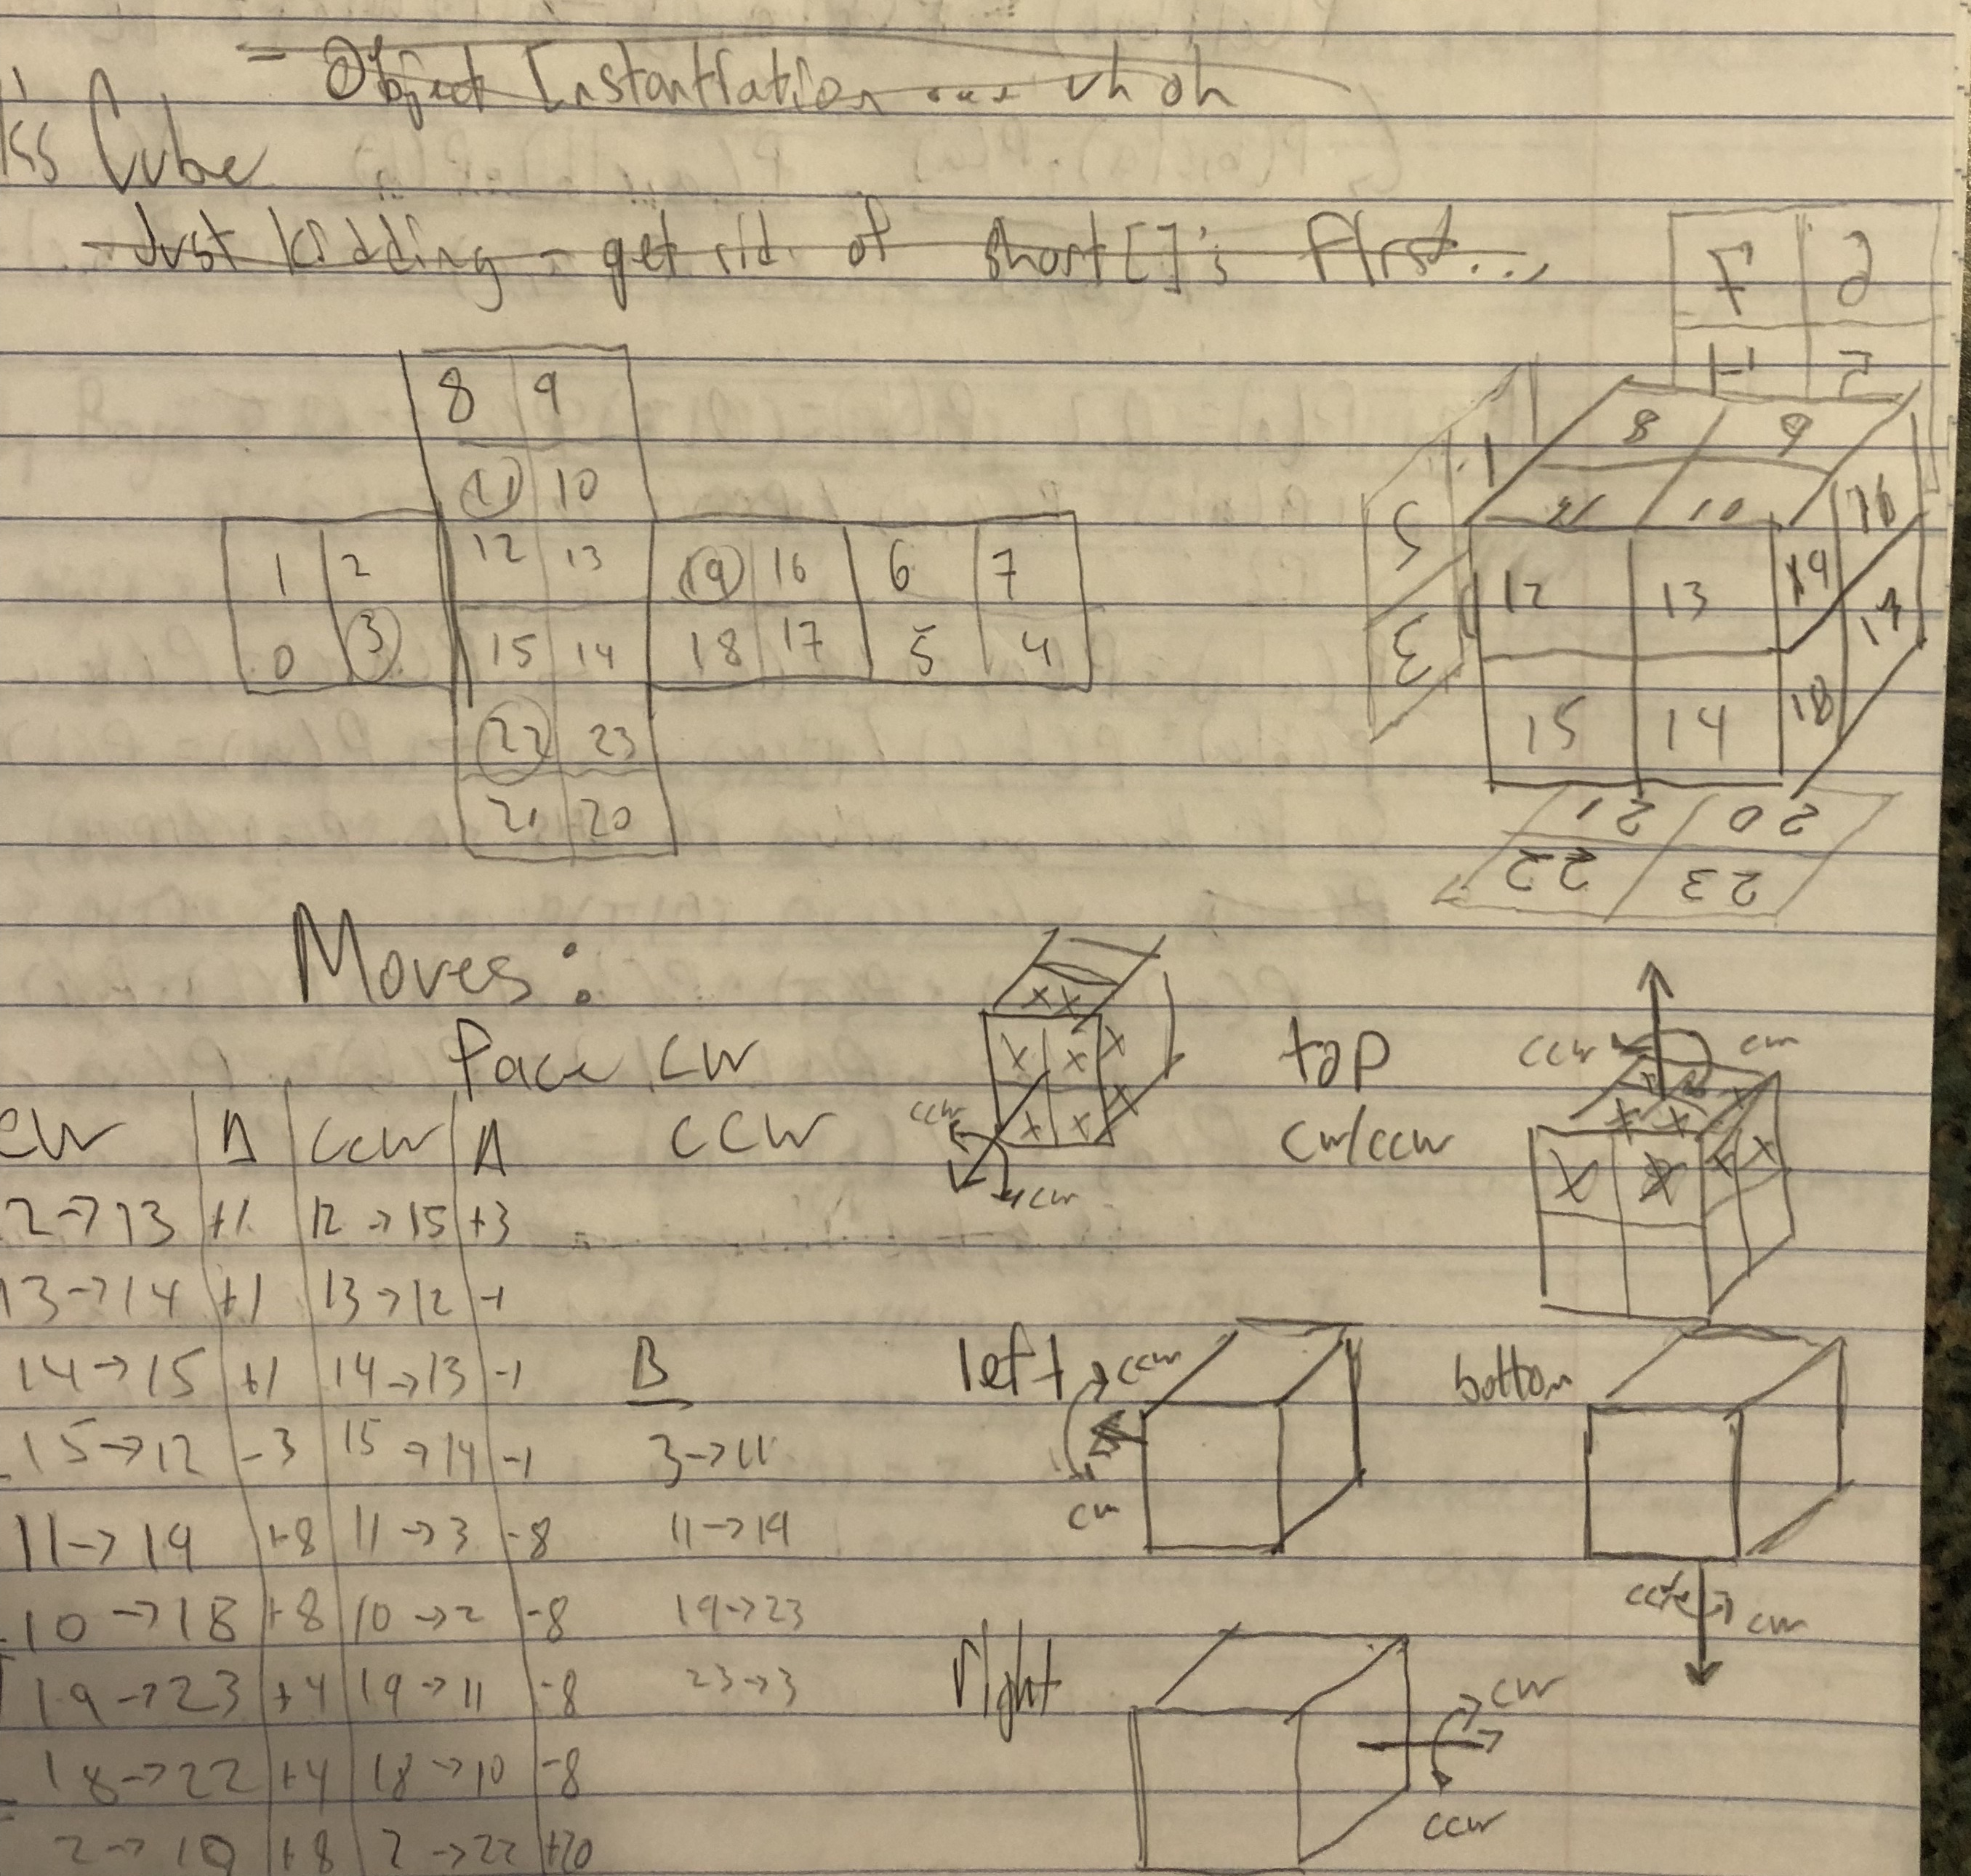 - Object Instantiation ... uh oh
ss Cube
- Just kidding - get rid of short[]'s first...
7 6
4 5
8 9
11 10
1 2 12 13 19 16 6 7
0 3 15 14 18 17 5 4
22 23
21 20
8 9
11 10
16
12 13 19 17
3
15 14 18
21 20
22 23
Moves:
Face CW
CCW
ccw
cw
top
cw/ccw
ccw cw
CW Δ CCW Δ
2→13 +1 12→15 +3
13→14 +1 13→12 -1
14→15 +1 14→13 -1
15→12 -3 15→14 -1
11→19 +8 11→3 -8
10→18 +8 10→2 -8
19→23 +4 19→11 -8
18→22 +4 18→10 -8
2→10 +8 2→22 +20
B
3→11
11→19
19→23
23→3
left ccw
cw
bottom
cw
right
cw
ccw